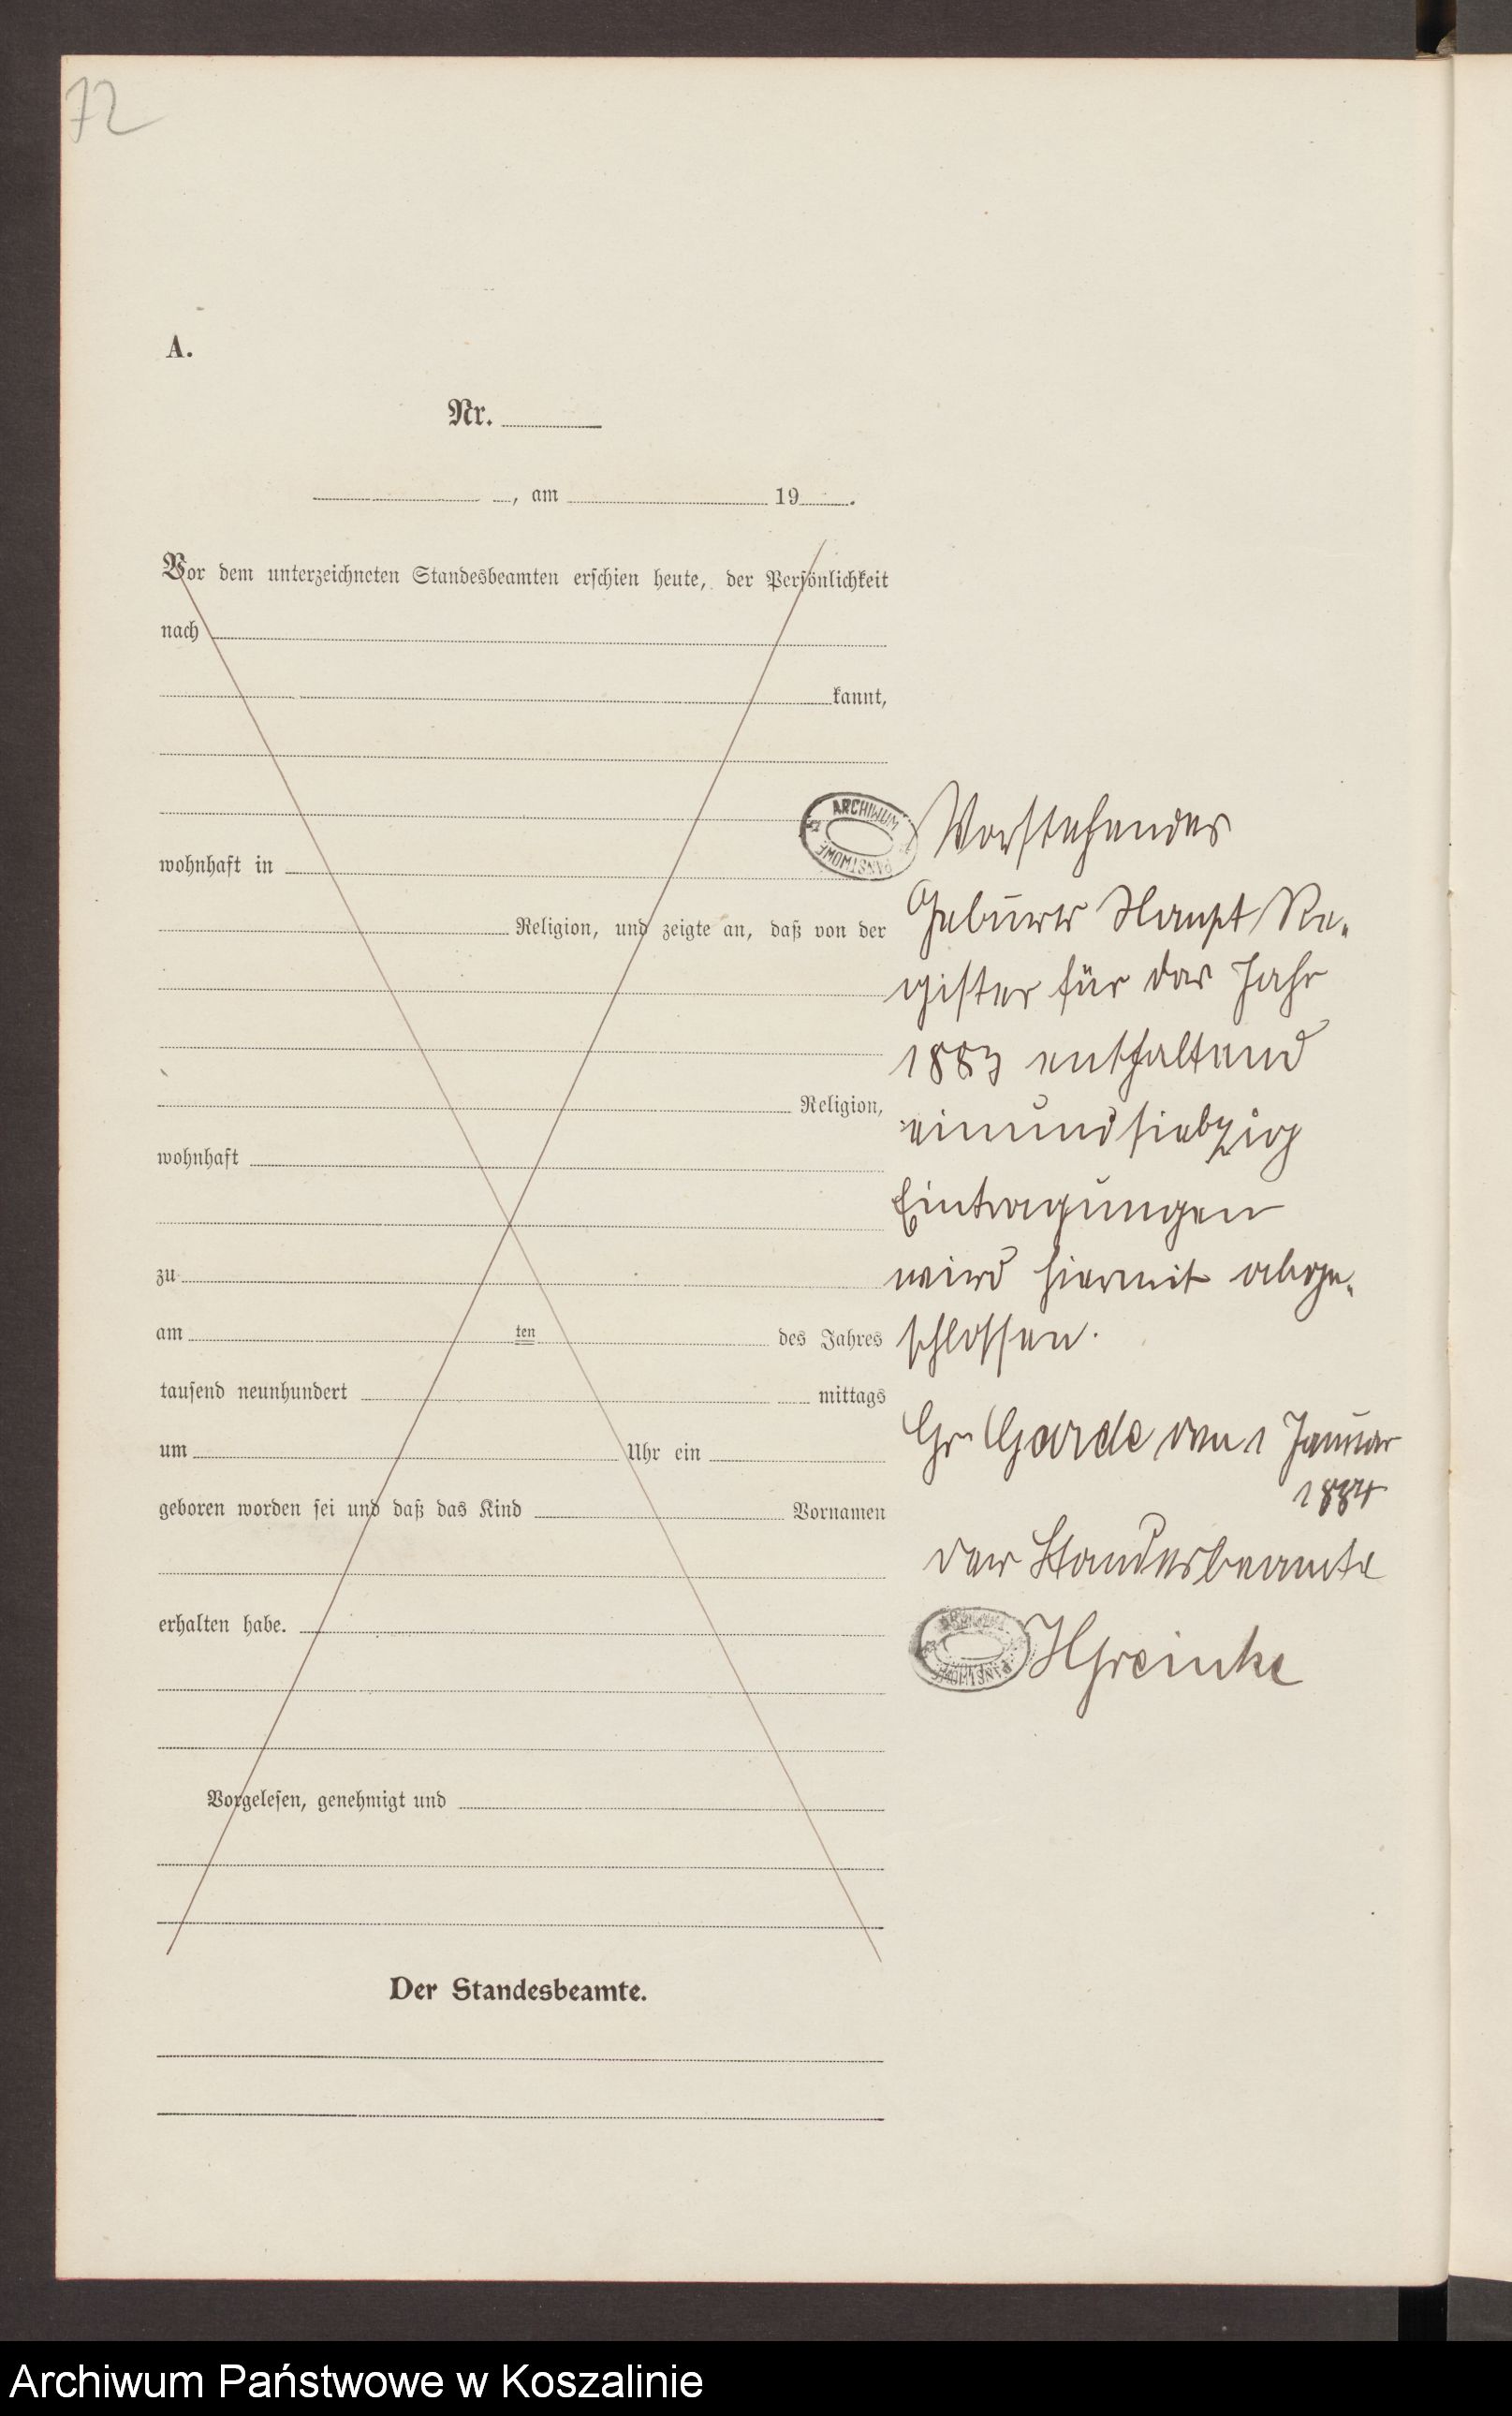 72
A.
Nr.
, am 19 .
Vor dem unterzeichneten Standesbeamten erschien heute, der Persönlichkeit
nach
kannt,
wohnhaft in
Religion, und zeigte an, daß von der
Religion,
wohnhaft
zu
am ten des Jahres
tausend neunhundert mittags
um Uhr ein
geboren worden sei und daß das Kind Vornamen
erhalten habe.
Vorgelesen, genehmigt und
Der Standesbeamte.
ARCHIWUM PAŃSTWOWE
Vorstehendes
Geburts Haupt Re-
gister für das Jahr
1883 enthaltend
einundsiebzig
Eintragungen
wird hiermit abge-
schlossen.
Gr Garde den 1 Januar
1884
der Standesbeamte
ARCHIWUM PAŃSTWOWE
Archiwum Państwowe w Koszalinie